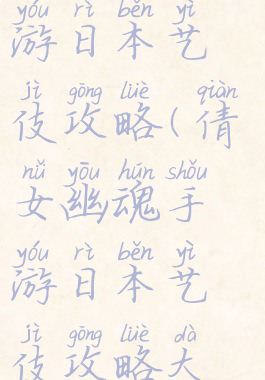 yóu rì běn yì
游日本艺
jì gōng lüè qiàn
伎攻略(倩
nǚ yōu hún shǒu
女幽魂手
yóu rì běn yì
游日本艺
jì gōng lüè dà
伎攻略大